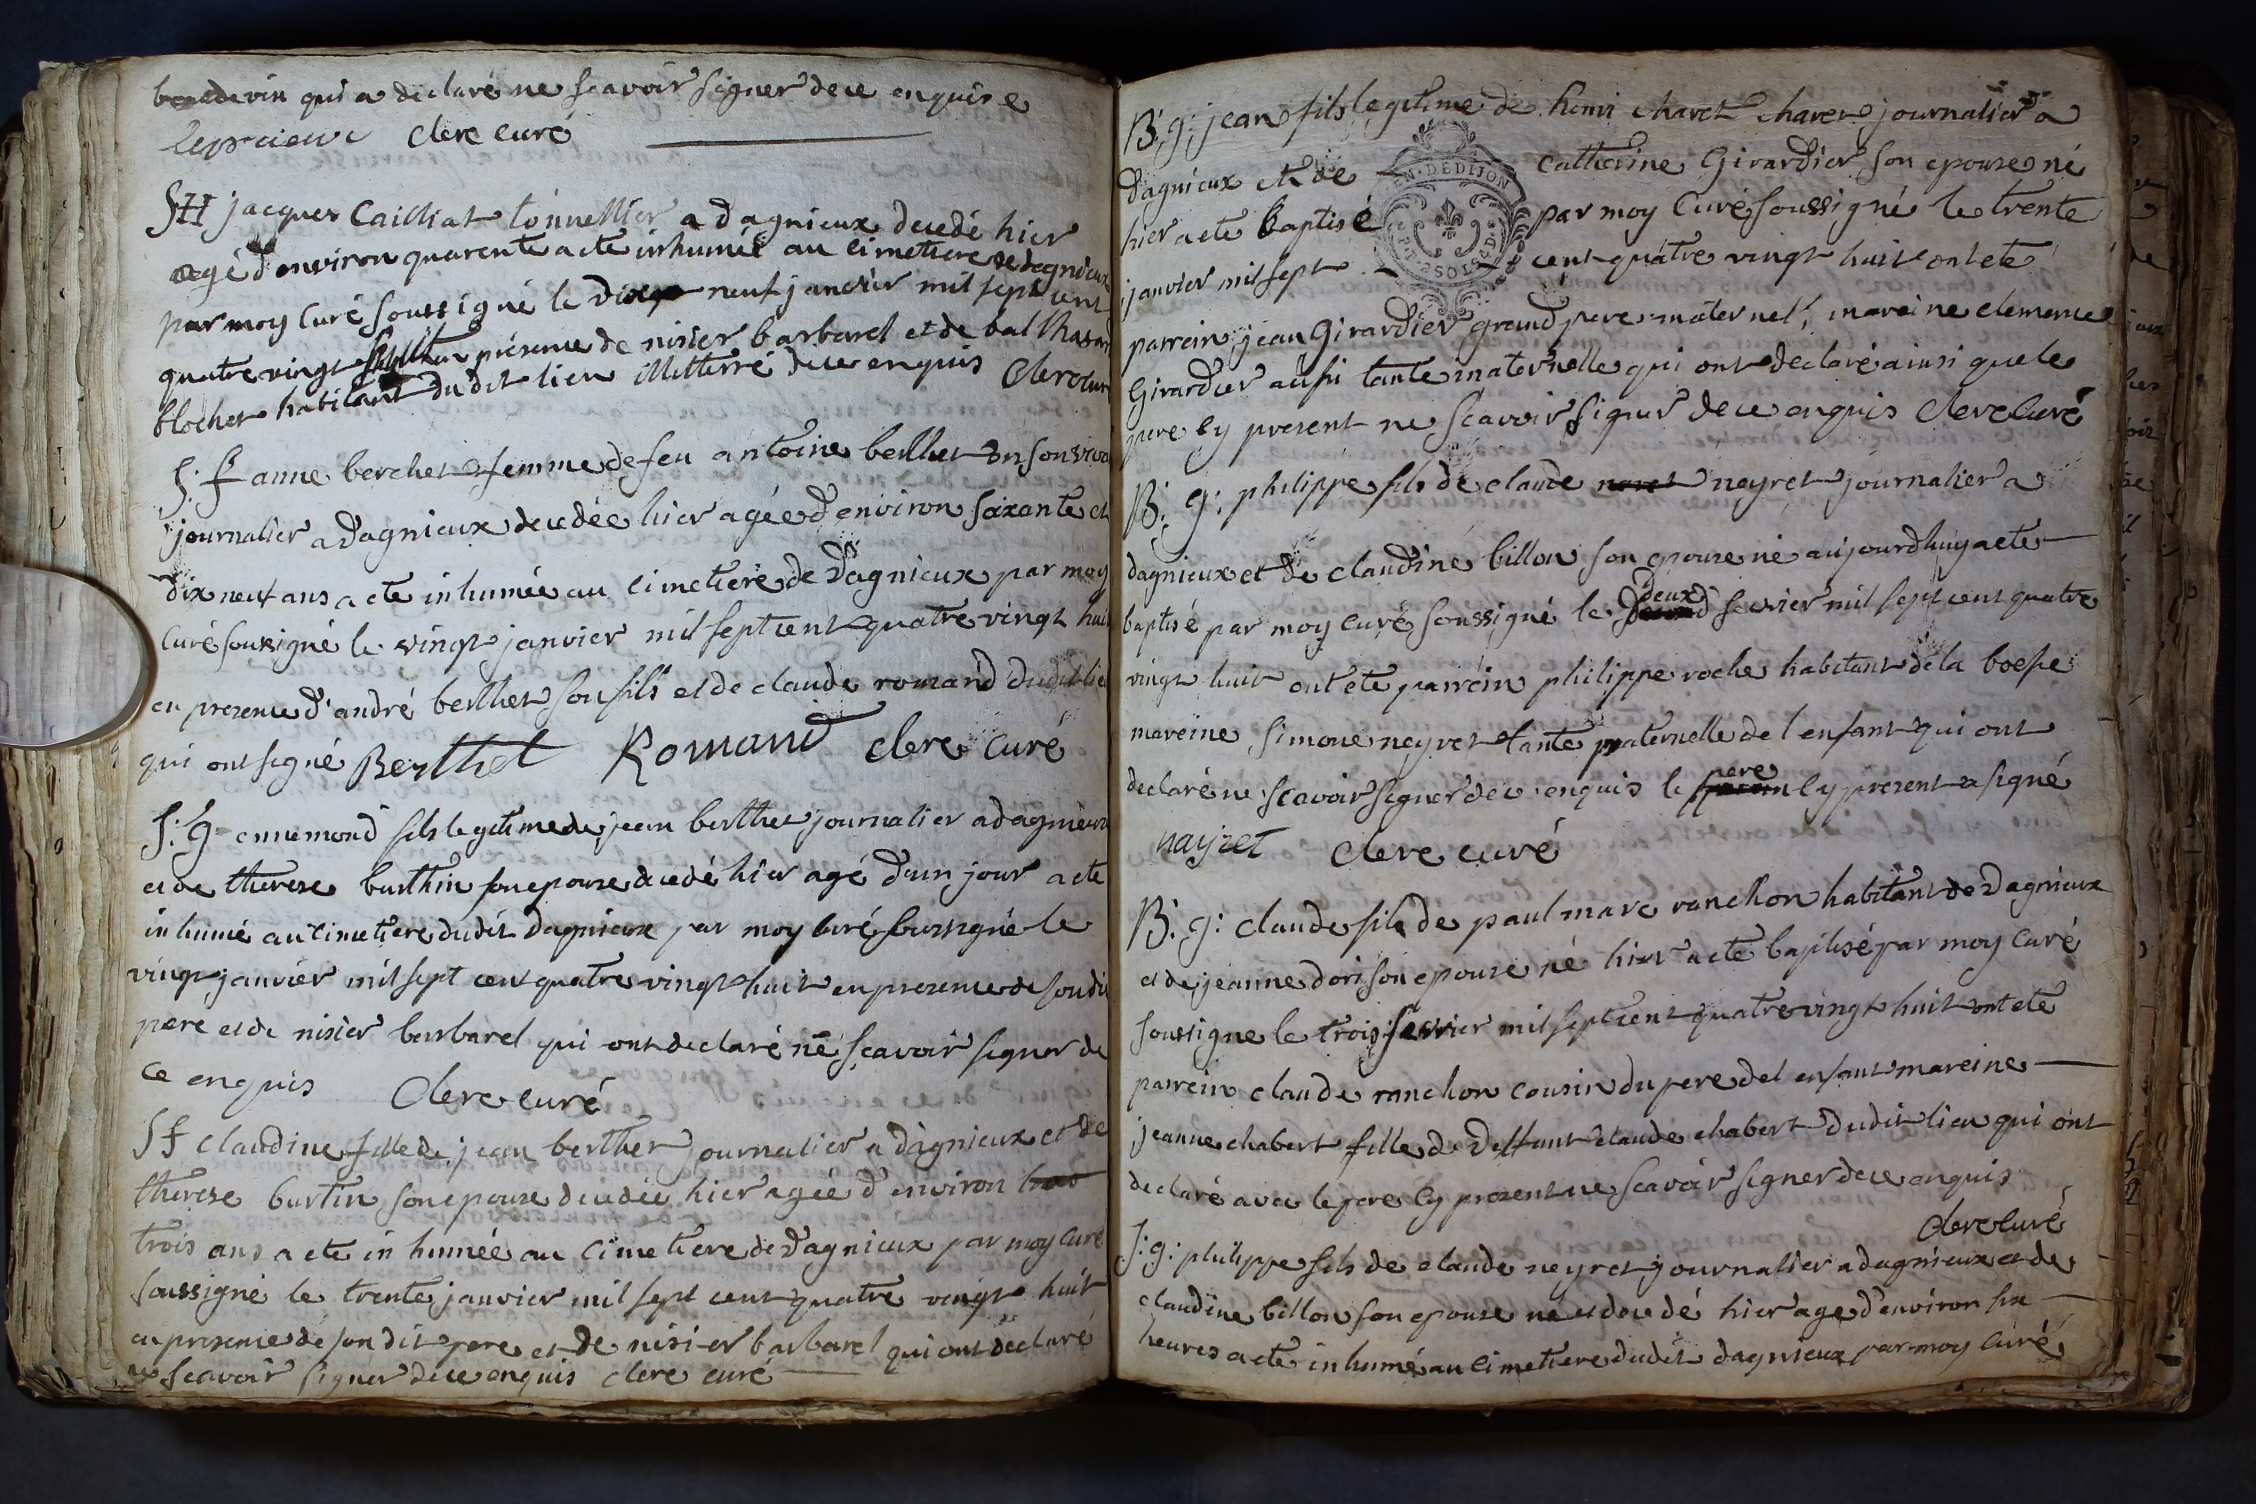 boudevin qui a declaré ne scavoir signer de ce enquis e
leprieur clerc curé
SH jacques Cailliat tonnellier a dagnieux decedé hier
agé d'environ quarente a ete inhumé au cimetiere de dagnieux
par moy Curé soussigné le dix neuf janvier mil sept cent
quatre vingt huit en présence de nisier barbarel et de balthasard
blochet habitant dudit lieu illitterré de ce enquis Clerc curé
S: f anne berchet femme de feu antoine berthet en son vivant
journalier a dagnieux decedée hier agée d'environ soixante et
dix neuf ans a ete inhumée au cimetiere de dagnieux par moy
Curé soussigné le vingt janvier mil sept cent quatre vingt huit
en presence d'andré berthet son fils et de claude romand dudit lieu
qui ont signé Berthet Romand clerc curé
S: g ennemond fils legitime de jean berthet journalier a dagnieux
et de therese burthin son epouse decedé hier agé d'un jour a ete
inhumé au cimetiere dudit dagnieux par moy curé soussigné le
vingt janvier mil sept cent quatre vingt huit en presence de son dit
pere et de nisier barbarel qui ont declaré ne scavoir signer de
ce enquis Clerc curé
Sf claudine fille de jean berthet journalier a dagnieux et de
therese burtin son epouse decedée hier agée d'environ trois
trois ans a ete inhumée au cimetiere de dagnieux par moy curé
soussigné le trente janvier mil sept cent quatre vingt huit
en presence de son dit pere et de nisier barbarel qui ont declaré
ne scavoir signer de ce enquis clerc curé
B: g: jean fils legitime de henri charet charet journalier a
dagnieux et de catherine Girardier son epouse né
hier a ete baptisé par moy Curé soussigné le trente
janvier mil sept cent quatre vingt huit ont ete
GEN. DE DIJON
parrein jean Girardier grand pere maternel, mareine clemence
Girardier aussi tante maternelle qui ont declaré ainsi que le
pere cy present ne scavoir signer de ce enquis clerc curé
B: g: philippe fils de claude neyret journalier a
dagnieux et de claudine billon son epouse né aujourdhuy a ete
baptisé par moy curé soussigné le deux fevrier mil sept cent quatre
vingt huit ont ete parrein philippe roche habitant de la boesse
mareine simone neyret tante paternelle de l enfant qui ont
declaré ne scavoir signer de ce enquis le pere cy present a signé
nayret clerc curé
B: g: claude fils de paul marc ranchon habitant de dagnieux
et de jeanne dori son epouse né hier a ete baptisé par moy curé
soussigne le trois fevrier mil sept cent quatre vingt huit ont ete
parrein claude ranchon cousin du pere del enfant mareine
jeanne chabert fille de deffunt claude chabert dudit lieu qui ont
declaré avec le pere cy present ne scavoir signer de ce enquis
clerc curé
S: g: philippe fils de claude neyret journalier a dagnieux et de
claudine billon son epouse ne et decedé hier age d'environ six
heures a ete inhumé au cimetiere dudit dagnieux par moy curé